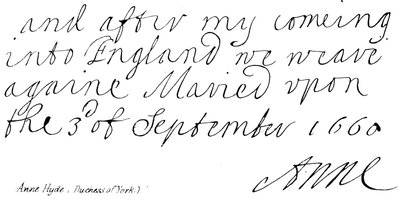 and after my comeing
into England we weare
againe Maried upon
the 3d of September 1660
Anne
Anne Hyde, Duchess of York.)